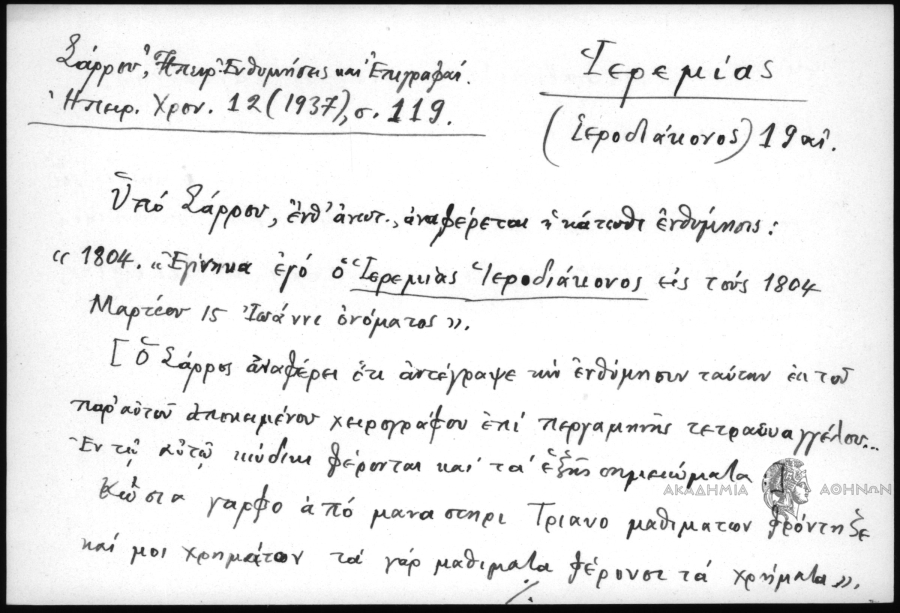 Σάρρου, Ἠπειρ. Ἐνθυμήσεις καὶ Ἐπιγραφαί.
Ἠπειρ. Χρον. 12 (1937), σ. 119.
Ἱερεμίας
(ἱεροδιάκονος) 19 αἰ.
Ὑπό Σάρρου, ἔνθ' ἀνωτ., ἀναφέρεται ἡ κάτωθι ἐνθύμησις:
« 1804. «Ἐγίνηκα ἐγό ὁ Ἱερεμίας Ἱεροδιάκονος εἰς τούς 1804
Μαρτέου 15 Ἰωάννι ὀνόματος».
[Ὁ Σάρρος ἀναφέρει ὅτι ἀντέγραψε τήν ἐνθύμησιν ταύτην ἐκ τοῦ
παρ' αὐτοῦ ἀποκειμένου χειρογράφου ἐπί περγαμηνῆς τετραευαγγέλου...
Ἐν τῷ αὐτῷ κώδικι φέρονται καί τά ἑξῆς σημειώματα :]
γαρφο ἀπό μαναστηρι Τριανο μαθιματων φρόντηξε
καί μοι χρημάτων τά γάρ μαθιματα φέρουσι τά χρήματα».
ΑΚΑΔΗΜΙΑ ΑΘΗΝΩΝ